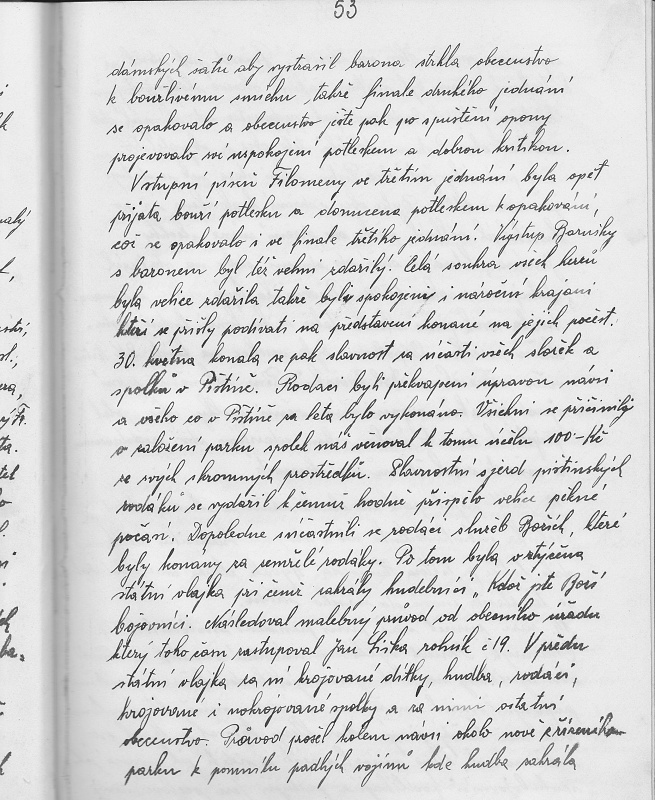 53
dámských šatů aby vystrašil barona strhla obecenstvo
k bouřlivému smíchu, takže finale druhého jednání
se opakovalo a obecenstvo ještě pak po spuštění opony
projevovalo své uspokojení potleskem a dobrou kritikou.
Vstupní píseň Filomeny ve třetím jednání byla opět
přijata bouří potlesku a donucena potleskem k opakování,
což se opakovalo i ve finale třetího jednání. Výstup Barušky
s baronem byl též velmi zdařilý. Celá souhra všech herců
byla velice zdařilá takže byli spokojeni i nároční krajani
kteří se přišly podívati na představení konané na jejich počest.
30. května konala se pak slavnost za účasti všech složek a
spolků v Pištíně. Rodáci byli překvapeni úpravou návsi
a všeho co v Pištíně za leta bylo vykonáno. Všichni se přičinily
o založení parku spolek náš věnoval k tomu účelu 100-Kč
ze svých skromných prostředků. Slavnostní sjezd pištinských
rodáků se vydařil k čemuž hodně přispělo velice pěkné
počasí. Dopoledne súčastnili se rodáci služeb Božích, které
byly konány za zemřelé rodáky. Po tom byla vztýčena
státní vlajka při čemž zahráli hudebníci „Kdož jste Boží
bojovníci. Následoval malebný průvod od obecního úřadu
který toho čam zastupoval Jan Liška rolník č 19. V předu
státní vlajka za ní krojované dítky, hudba, rodáci,
krojované i nekrojované spolky a za nimi ostatní
obecenstvo. Průvod prošel kolem návsi okolo nově zřízeného
parku k pomníku padlých vojínů kde hudba zahrála